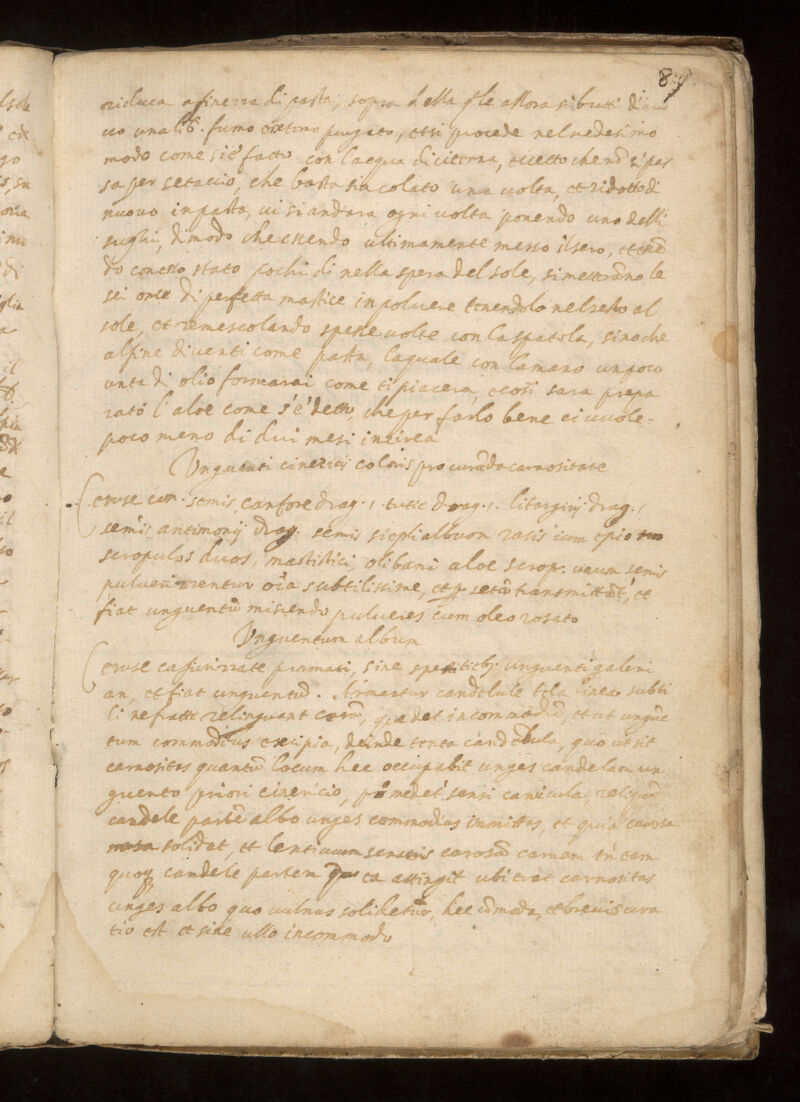 89
riduca a finezza di pasta, sopra della q̃le allora si butti di nuo
uo una lb. fumo ottimo purgato, et si procede nel medesimo
modo come si é fatto con l'acqua di citterna, eccetto che nõ si pas
sa per setaccio, che basta sia colato una uolta, et ridotto di
nuouo in pasta, ui si andara ogni uolta ponendo uno delli
sughi, di modo che essendo ultimamente messo il sero, et
do con esso stato pochi di nella spera del sole, si metterãno le
sei onze di perfetta mastice in poluere tenendolo nel resto al
sole, et remescolando spesse uolte con la spatola, sinoche
alfine diuenti come pasta, laquale con la mano un poco
unta di olio formarai come ti piacera, et cosi sara prepa
rató l'aloe come s'é detto, che per farlo bene ci uuole
poco meno di dui mesi in circa
Unguenti cinericij coloris pro curãda carnositate
Ceruse semis, canfore drag. 1. tutie drag. 1. litargirij drag. 1
semis antimonij drag. semis albuon rasis cum opio
scropulos duos, mastici, olibani aloe scrop. unum semis
puluerizzentur oĩa subtilissime, et p setã transmittãt, et
fiat unguentũ miscendo pulueres cum oleo rosato
Unguentum album
Ceruse sine unguenti galeni
an, et fiat unguentũ. Armantur candelule tela linea subti
li ne fracte relinquant que det incommodũ, et ut unguẽ
tum commodius excipia, deinde tenta candelula, quo ut sit
carnositas quantũ locum hec occupabit unges candelam un
guento priori cinericio, candele partẽ albo unges commodius inmittas, et quia
solidat, et carnem tñ tam
quoq candele partem ea attingit ubi erat carnositas
unges albo quo uulnus solidetur, hec cõmoda, et breuis cura
tio est et sine ullo incommodo